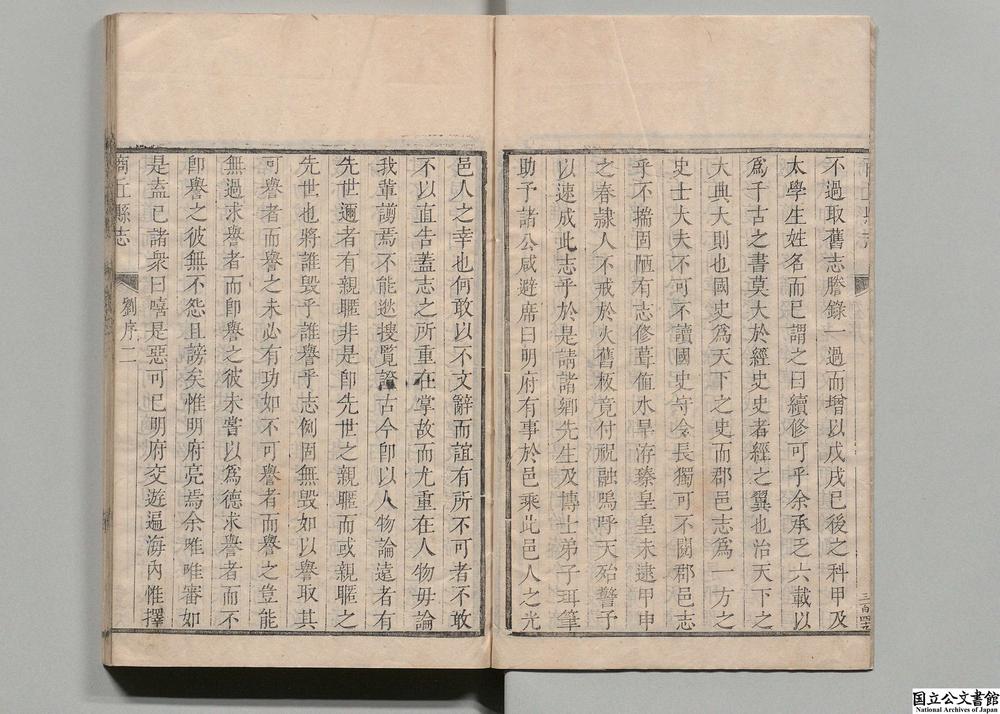 不過取舊志謄錄一過而增以戊戌已後之科甲及
太學生姓名而已謂之曰續修可乎余承乏六載以
爲千古之書莫大於經史史者經之翼也治天下之
大典大則也國史爲天下之史而郡邑志爲一方之
史士大夫不可不讀國史守令長獨可不閱郡邑志
乎不揣固陋有志修葺值水旱洊臻皇皇未逮甲申
之春隸人不戒於火舊板竟付祝融嗚呼天殆警予
以速成此志乎於是請諸鄉先生及博士弟子珥筆
助予諸公咸避席曰明府有事於邑乘此邑人之光
三百四十
邑人之幸也何敢以不文辭而誼有所不可者不敢
不以直告蓋志之所重在掌故而尤重在人物毋論
我輩謭焉不能逖搜覽證古今卽以人物論遠者有
先世邇者有親暱非是卽先世之親暱而或親暱之
先世也將誰毀乎誰譽乎志例固無毀如以譽取其
可譽者而譽之未必有功如不可譽者而譽之豈能
無過求譽者而卽譽之彼未嘗以爲德求譽者而不
卽譽之彼無不怨且謗矣惟明府亮焉余唯唯審如
是盍已諸衆曰嘻是惡可已明府交遊遍海內惟擇
商丘縣志
劉序二
国立公文書館
National Archives of Japan